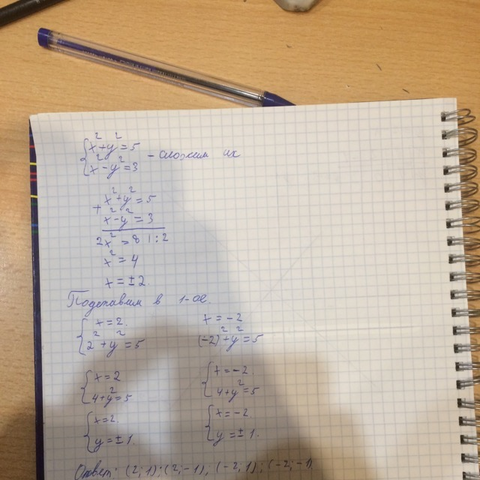 {x²+y²=5
{x²-y²=3 - сложим их
+ x²+y²=5
x²-y²=3
2x²=8 |:2
x²=4
x=±2
Подставим в 1-ое.
{x=2 x=-2
{2²+y²=5 (-2)²+y²=5
{x=2 {x=-2
{4+y²=5 {4+y²=5
{x=2 {x=-2
{y=±1. {y=±1.
Ответ: (2;1);(2;-1),(-2;1);(-2;-1)